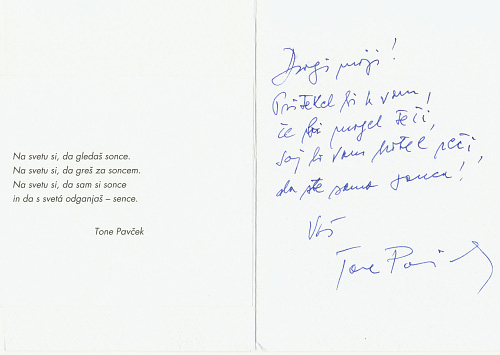 Na svetu si, da gledaš sonce.
Na svetu si, da greš za soncem.
Na svetu si, da sam si sonce
in da s svetá odganjaš – sence.
Tone Pavček
Dragi moji!
Pritekel bi k vam,
če bi mogel teči,
saj bi vam hotel reči,
da ste sama sonca!
Vaš
Tone Pavček